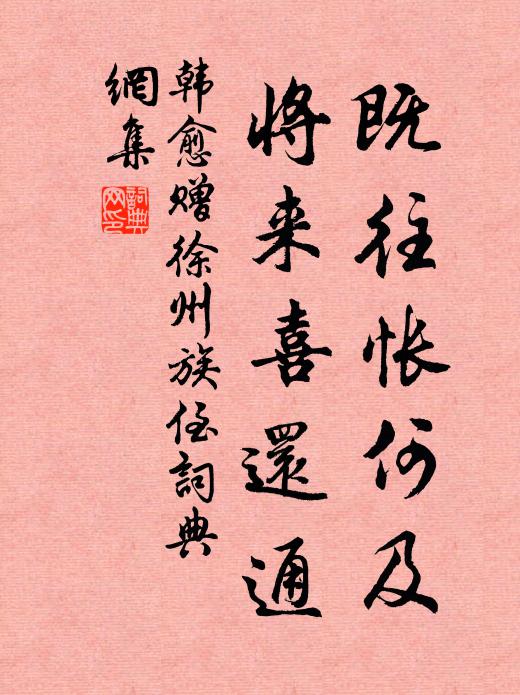 既往怅何及
将来喜還通
韩愈赠徐州族侄詞典
網集
詞典网印